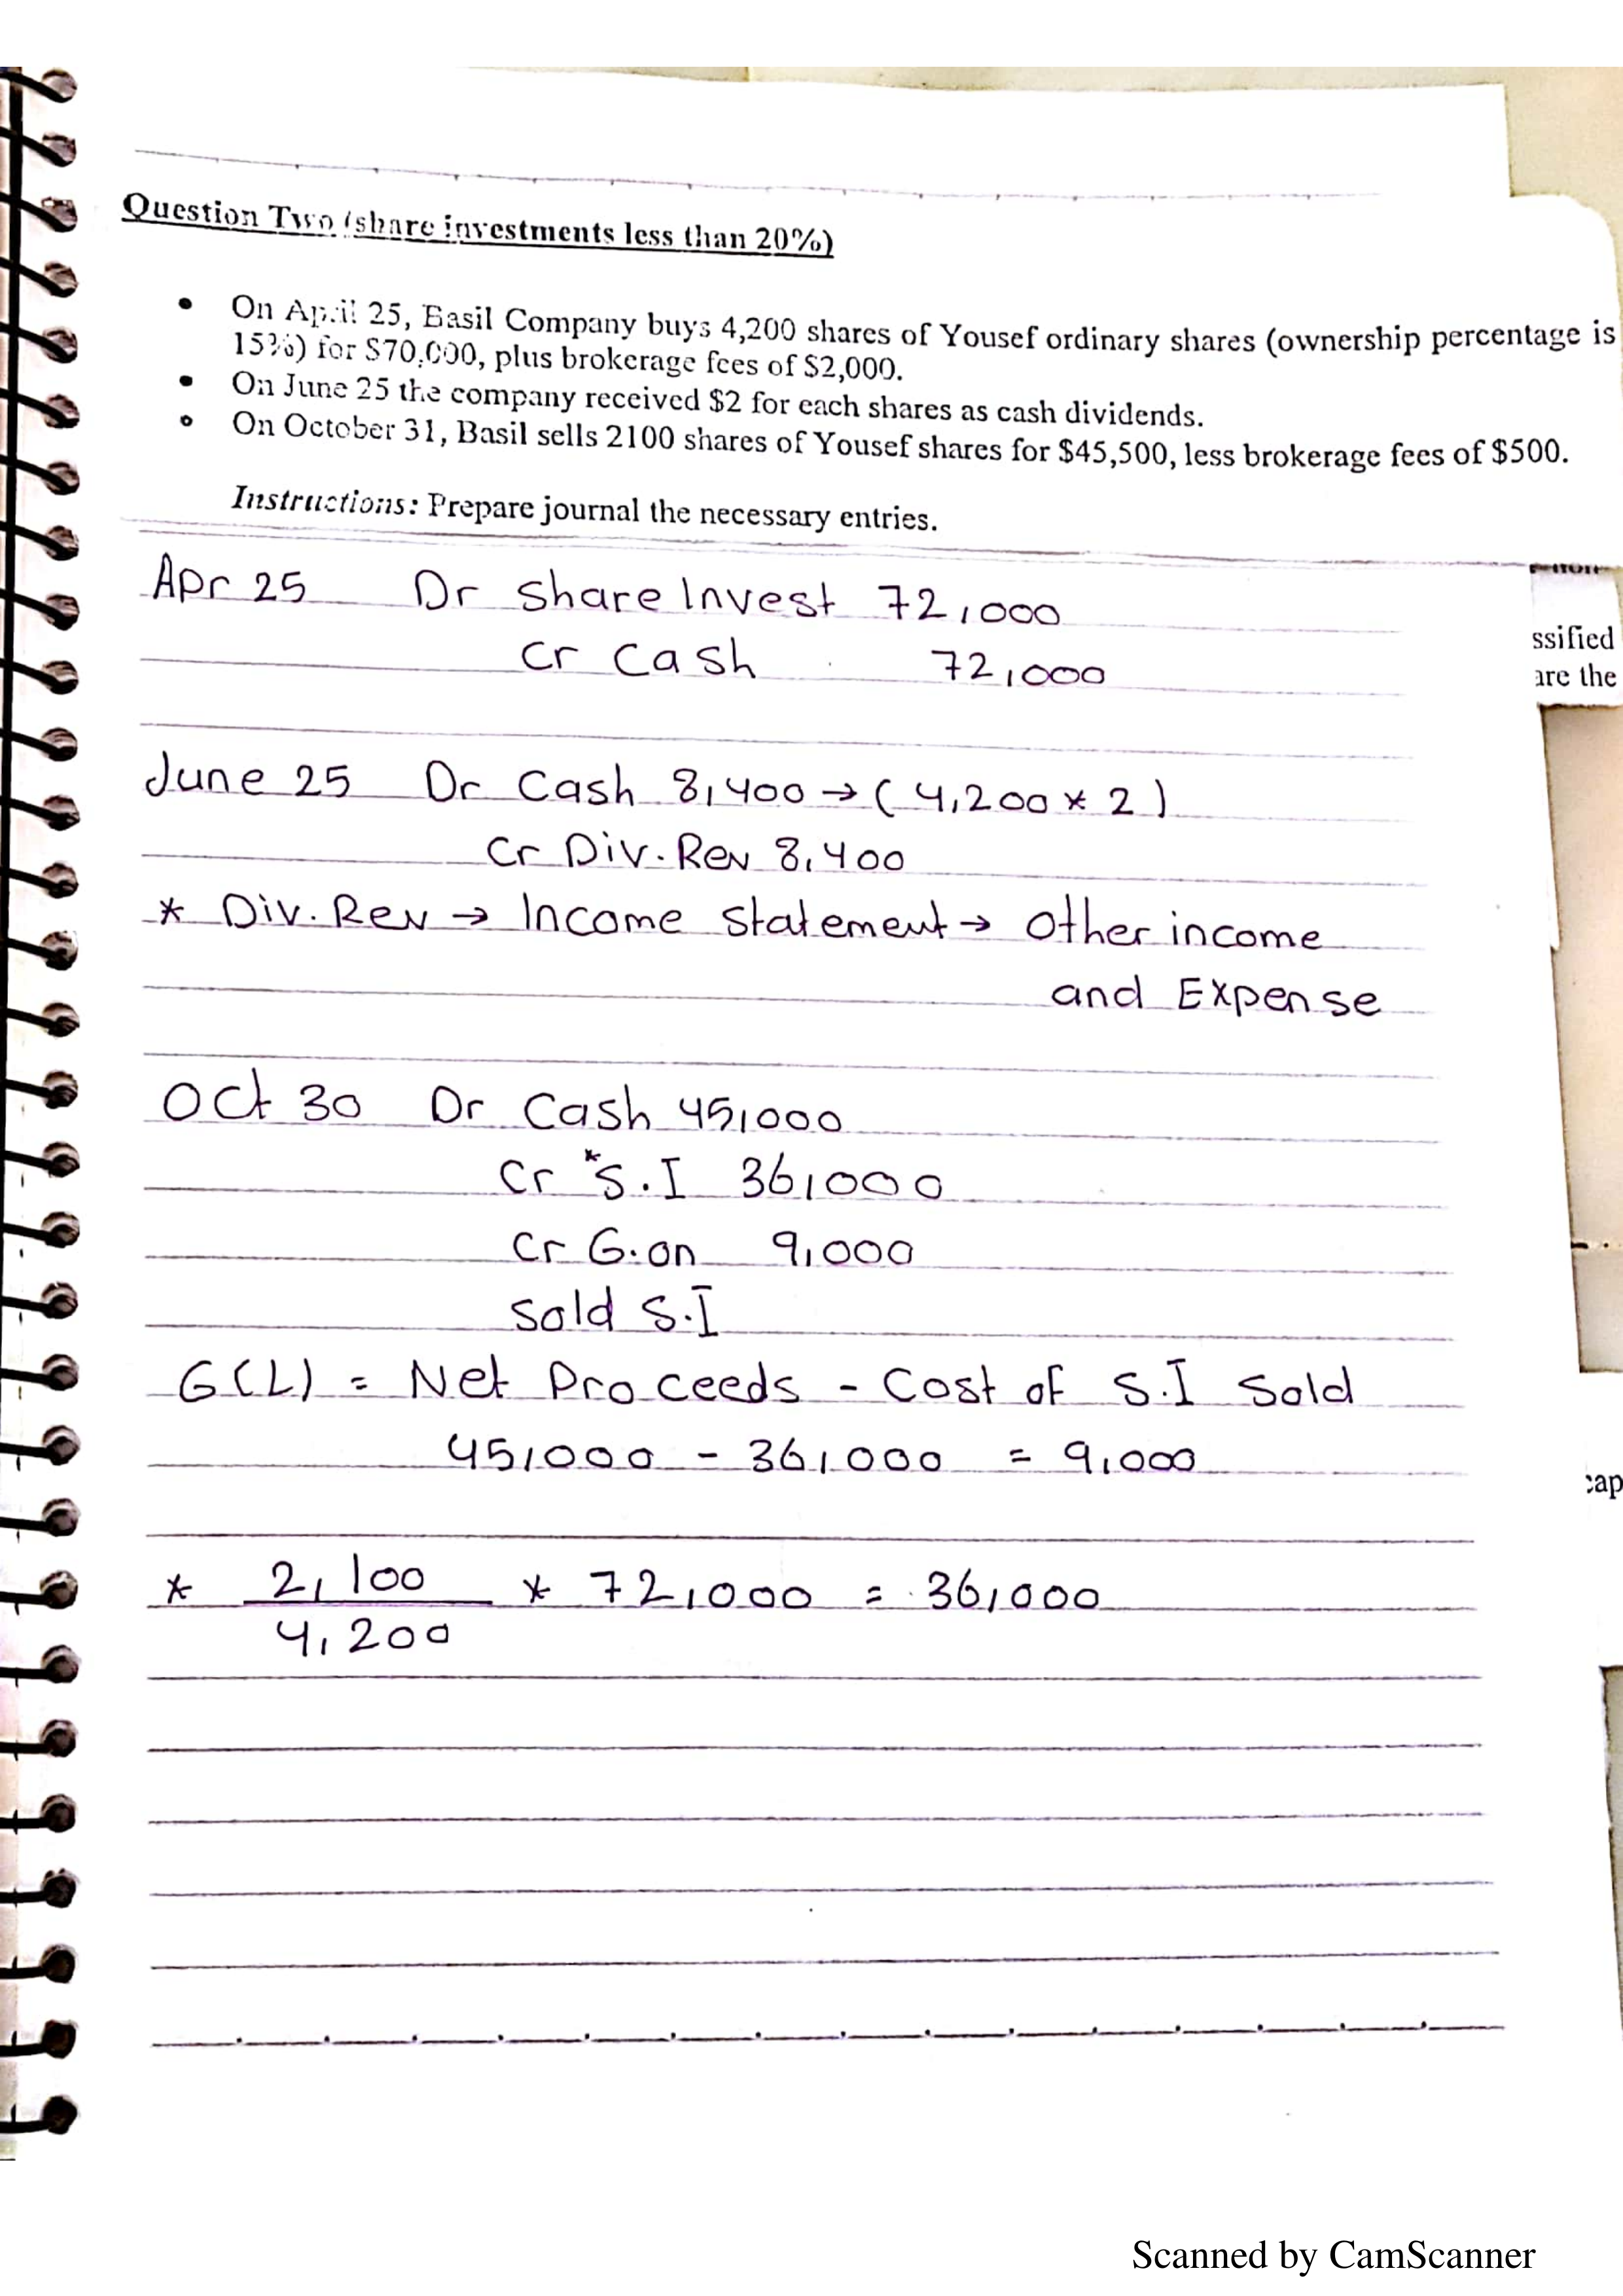 Question Two (share investments less than 20%)
• On April 25, Basil Company buys 4,200 shares of Yousef ordinary shares (ownership percentage is
15%) for $70,000, plus brokerage fees of $2,000.
• On June 25 the company received $2 for each shares as cash dividends.
• On October 31, Basil sells 2100 shares of Yousef shares for $45,500, less brokerage fees of $500.
Instructions: Prepare journal the necessary entries.
Apr 25 Dr Share Invest 72,000
Cr Cash 72,000
ssified
are the
June 25 Dr Cash 8,400 → (4,200 * 2)
Cr Div. Rev 8,400
* Div. Rev → Income Statement → Other income
and Expense
Oct 30 Dr Cash 45,000
Cr *S.I 36,000
Cr G.on 9,000
Sold S.I
G(L) = Net Proceeds - Cost of S.I Sold
45,000 - 36,000 = 9,000
cap
* 2,100 * 72,000 = 36,000
4,200
Scanned by CamScanner